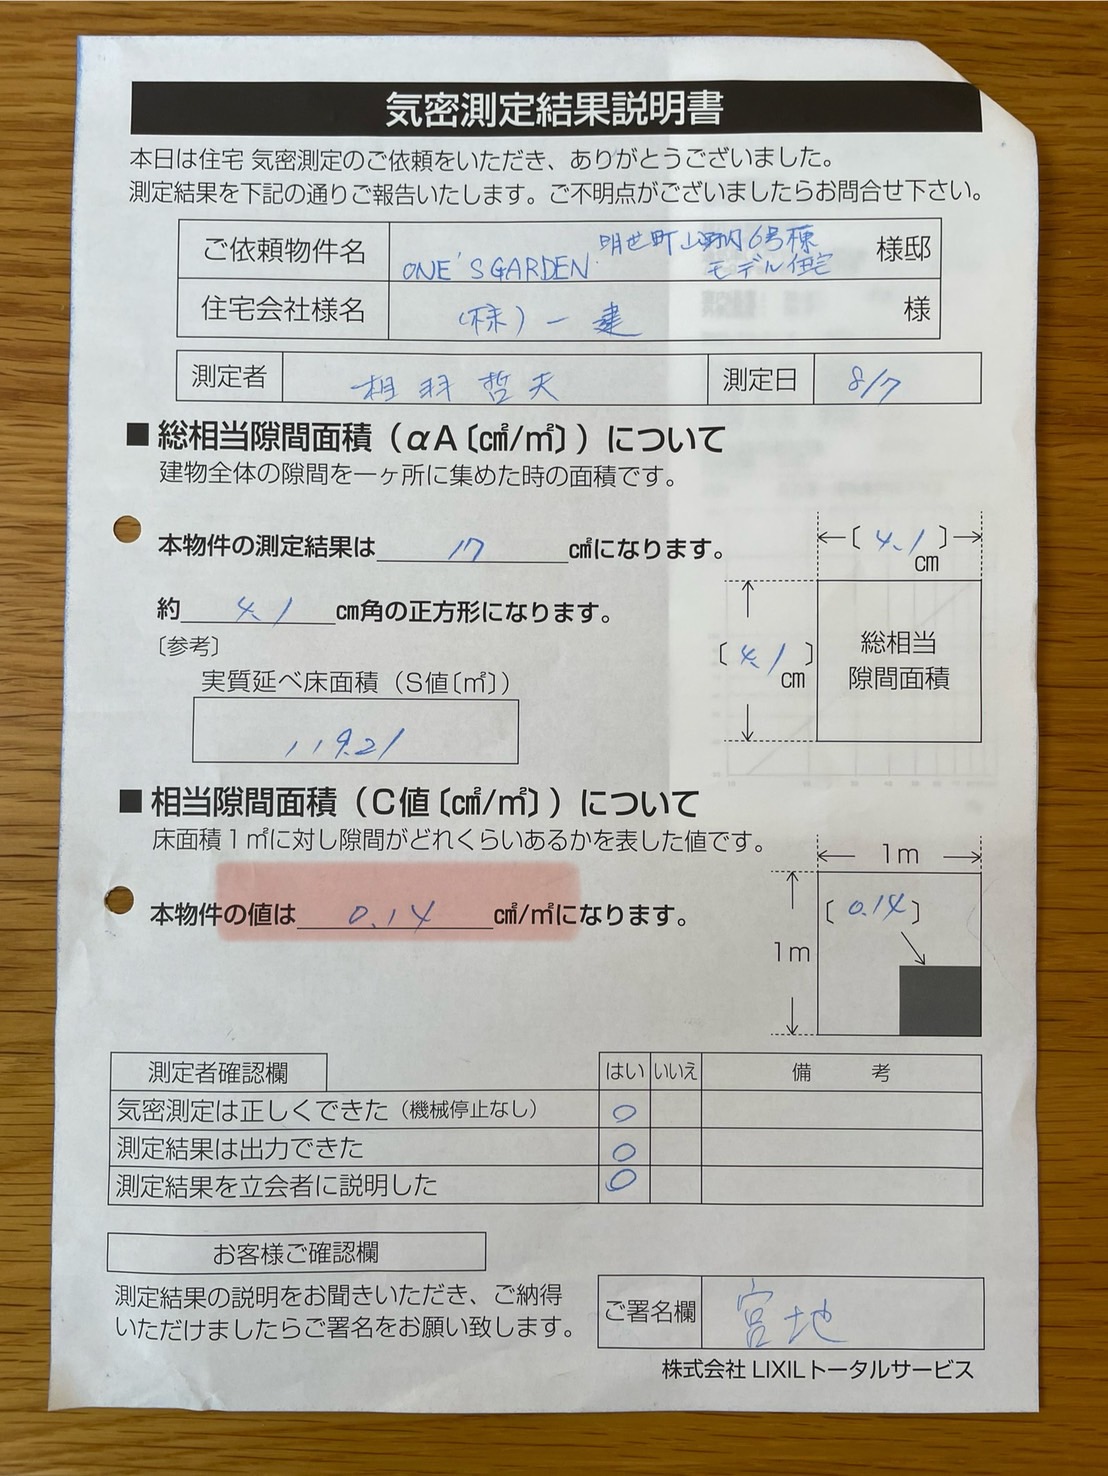 気密測定結果説明書
本日は住宅 気密測定のご依頼をいただき、ありがとうございました。
測定結果を下記の通りご報告いたします。ご不明点がございましたらお問合せ下さい。
ご依頼物件名
明世町山野内6号棟
ONE'S GARDEN モデル住宅
様邸
住宅会社様名 (株)一建 様
測定者 相羽哲夫 測定日 8/7
■ 総相当隙間面積（αA〔㎠/㎡〕）について
建物全体の隙間を一ヶ所に集めた時の面積です。
本物件の測定結果は 17 ㎠になります。
約 4.1 ㎝角の正方形になります。
〔参考〕
実質延べ床面積（S値〔㎡〕）
119.21
〔 4.1 〕
cm
〔 4.1 〕
cm
総相当
隙間面積
■ 相当隙間面積（C値〔㎠/㎡〕）について
床面積１㎡に対し隙間がどれくらいあるかを表した値です。
本物件の値は 0.14 ㎠/㎡になります。
1m
〔 0.14 〕
1m
測定者確認欄 はい いいえ 備考
気密測定は正しくできた（機械停止なし） ○
測定結果は出力できた ○
測定結果を立会者に説明した ○
お客様ご確認欄
測定結果の説明をお聞きいただき、ご納得
いただけましたらご署名をお願い致します。
ご署名欄 宮地
株式会社 LIXILトータルサービス